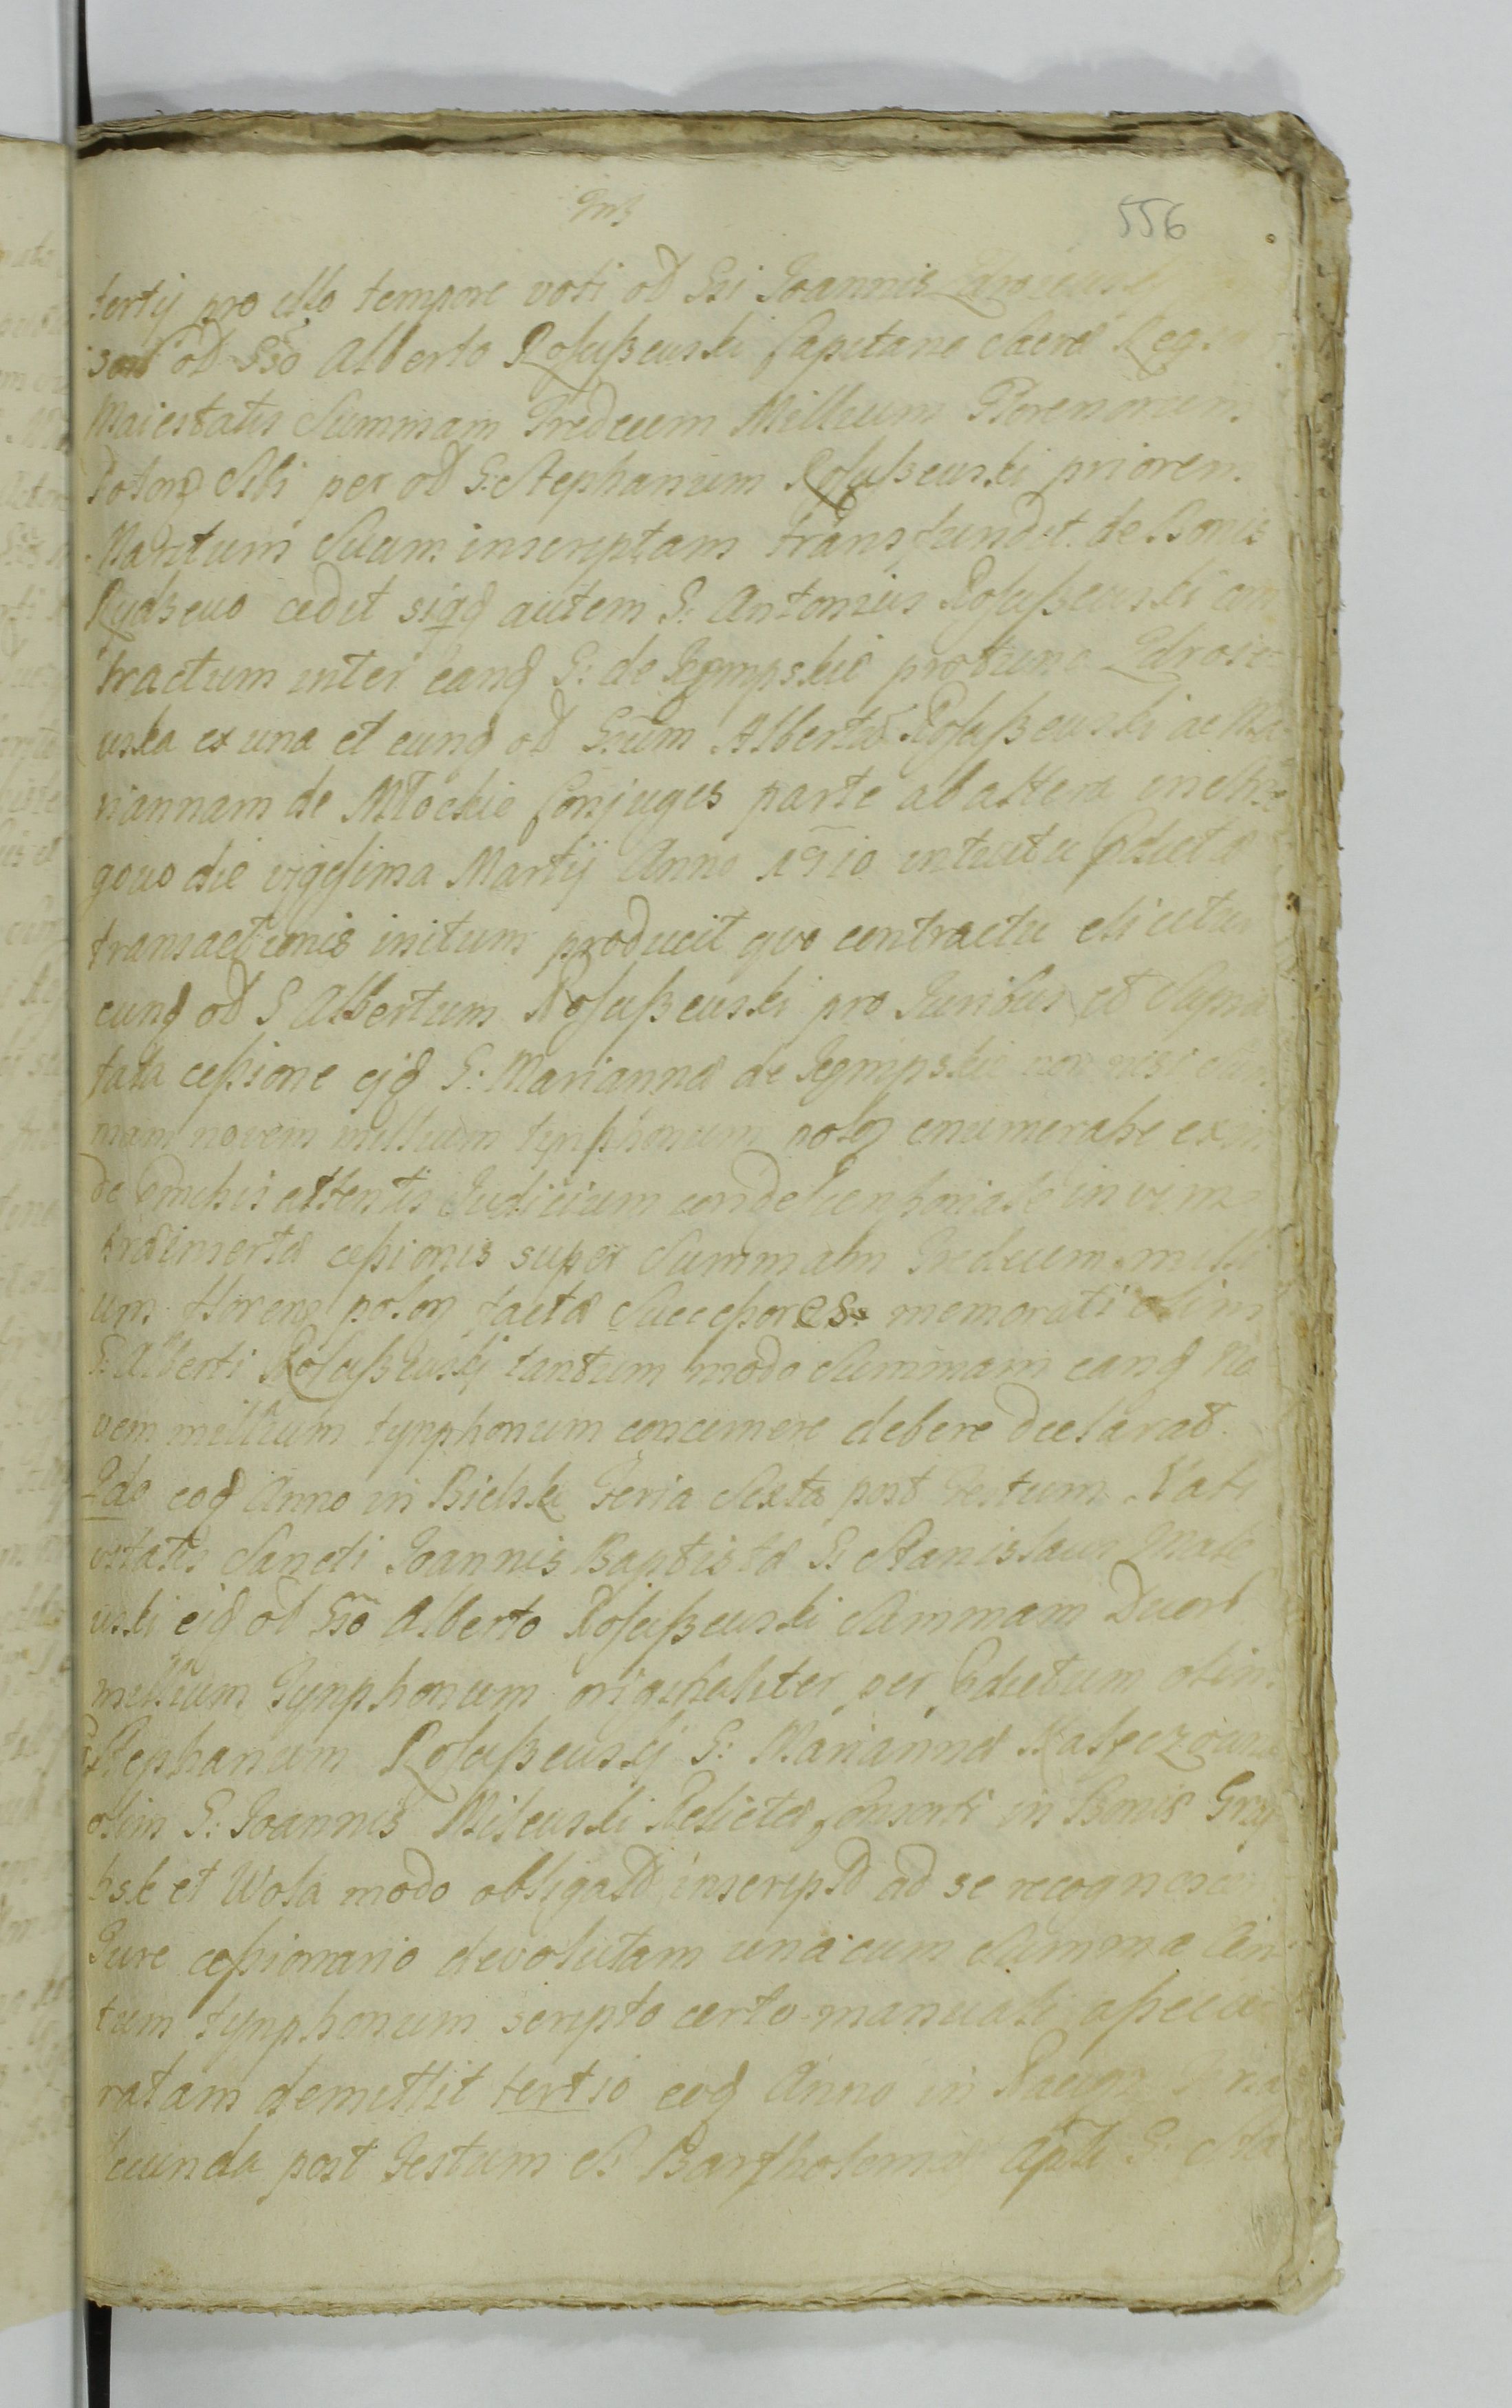 556
tertij pro illo tempore voti od Gsi Joannis
sors od Gso Alberto Roſuſzewski Capitane Sacræ Regiæ
Maiestatis Summam Tredecim Millium Florenorum
Polonq Sibi per od G: Stephanum Roſuſzewski priorem
Maritum Suum inscriptam transfundit de Bonis
Rydzewo cedit siqd autem G: Antonius Roſuſzewski con
tractum inter eandq G: de Kempskie protunc Zdroie
wska ex una et eundq od Gsum Albertū Roſuſzewski ac Ma
riannam de Młockie Conjuges parte ab altera in
gowo die vigeſima Martij Anno 1710 intuitu Pdictæ
transactionis initum producit quo contractu dicitur
eundq od G Albertum Roſuſzewski pro Juribus et Supra
tata ceſsione ejdq G: Mariannæ de Kempskie non nisi Sum
mam novem millium tynphonum polq enumeraſse exin
de attentis Judicium in vim
insertæ ceſsionis super Summam Tredecim milli
um florenq polon factæ Succeſsores memorati olim
G: Alberti Roſuſzewskij tantum modo Summam eandq No
vem millium tynphonum concernere debere declarat
2do eodq Anno in Bielsk Feria Sexta post Festum Nati
vitatis Sancti Joannis Baptistæ G: Stanislaus Male
wski eidq od Gso Alberto Roſuſzewski Summam Duorū
millium Tynphonum originaliter per Pdictum olim
G Stephanum Roſuſzewskij G: Mariannæ
olim G: Joannis Milewski Relictæ Consorti in Bonis Gray
bsk et Wola modo obligatɔ inscriptɔ ad se recognoscen
Jure ceſsionario devolutam una cum Summa Cen
tum tynphonum scripto certo manuali aſsecu
ratam demittit tertio eodq Anno in Raygr Feria
Secunda post Festum S: Bartholomæi Apli G: Sta